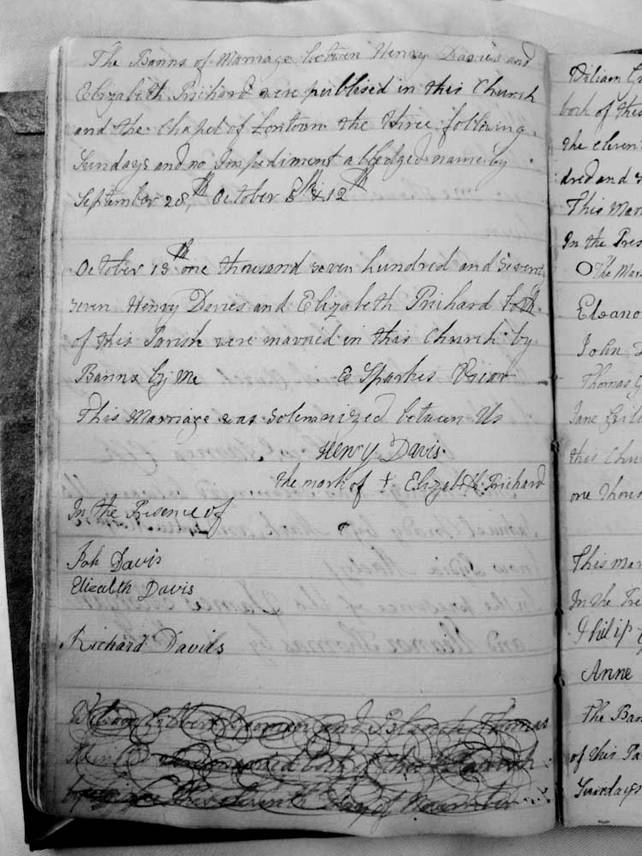 The Banns of Marriage between Henry Davies and
Elizabeth Prichard were publised in this Church
and the Chapel of Lontown the three following
Sundays and no Impediment alledged namely
September 28th October 5th & 12th
October 13th one thousand seven hundred and seventy
seven Henry Davies and Elizabeth Prichard both
of this Parish were married in this Church by
Banns by me E Sparkes Vicar
This Marriage was Solemnized between Us
Henry Davis
the mark of + Elizabth Prichard
In the Presence of
Joh Davis
Elizabth Davis
Richard Davies
Gilbert Yeoman and Blanch Thomas
married both of this Parish
this eleventh Day of November
William
both of this
the eleven
dred and
This Mar
In the Pres
The Mar
Eleano
John
Thomas
Jane
this Chur
one thous
This mar
In the Pre
Philip
Anne
The Ban
of this Pa
Sundays